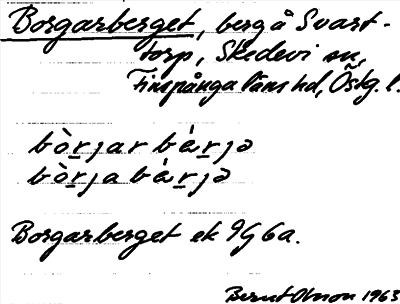 Borgarberget, berg å Svart-
torp, Skedevi sn,
Finspånga läns hd, Östg. l.
bòrjar bérjə
bòrja bérjə
Borgarberget ek 9G 6a.
Bernt Olsson 1963